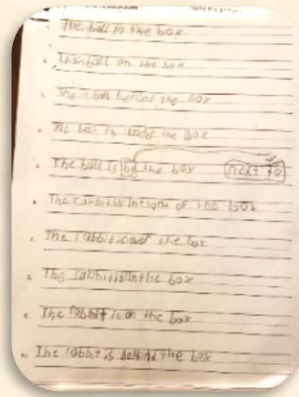 The ball in the box
The ball on the box
The ball behind the box
The ball is under the box
The ball is by the box next to
The rabbit is in front of the box
The rabbit is over the box
The rabbit is in the box
The rabbit is on the box
The rabbit is behind the box